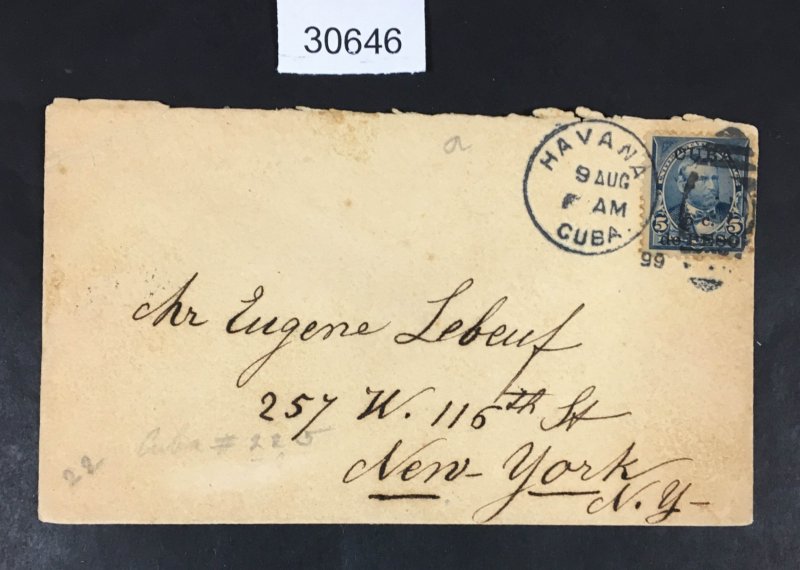 30646
a
HAVANA
9 AUG
AM
CUBA.
99
CUBA
5 c. 5
de PESO
Mr Eugene Lebeuf
257 W. 116th St
New-York
N.Y-
Cuba # 225
22